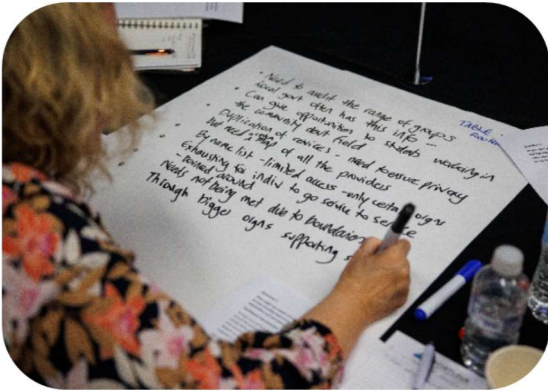 • Need to audit the range of groups
local govt often has this info —
• Can give opportunities to students working in
the community dent field
• Duplication of services - need to ensure privacy
but need a map of all the providers
By name list - limited access - only certain orgs
Exhausting for indiv to go service to service
around
Needs not being met due to boundaries
Through bigger orgs supporting s
TABLE